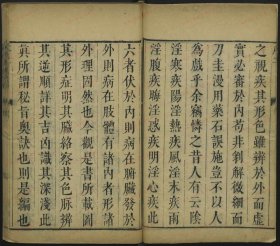 之視疾其形色雖辨於外而
實必審於内苟非剖解微細而
刀圭漫用藥石誤施豈不以人
為戲乎余竊憾之昔人有云陰
淫寒疾陽淫熱疾風淫末疾雨
淫腹疾晦淫惑疾明淫心疾此
六者伏於内則病在臟腑發於
外則病在肢體有諸内者形諸
外理固然也今觀是書所載圖
其形症明其臟絡察其色脉辨
其逆順詳其吉凶識其深淺此
真所謂秘旨奥訣也則是編也